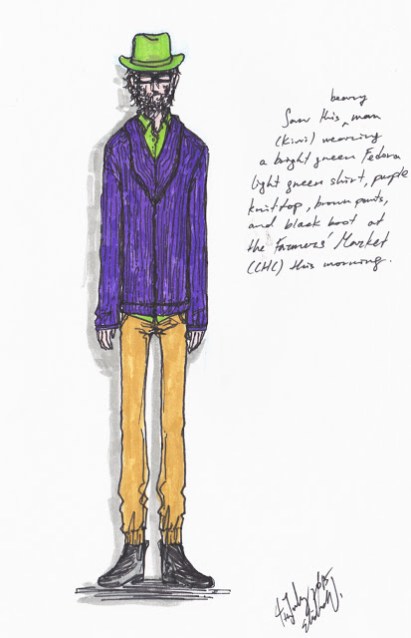 beany
Saw this ‸ man
(Kiwi) wearing
a bright green Fedora
light green shirt, purple
knit top, brown pants,
and black boot at
the Farmers' Market
(CHC) this morning.